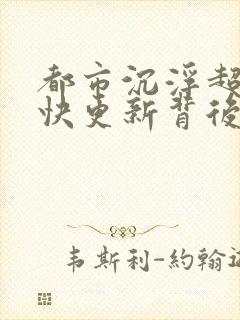 都市沉浮超
快更新背後
韦斯利-約翰遜